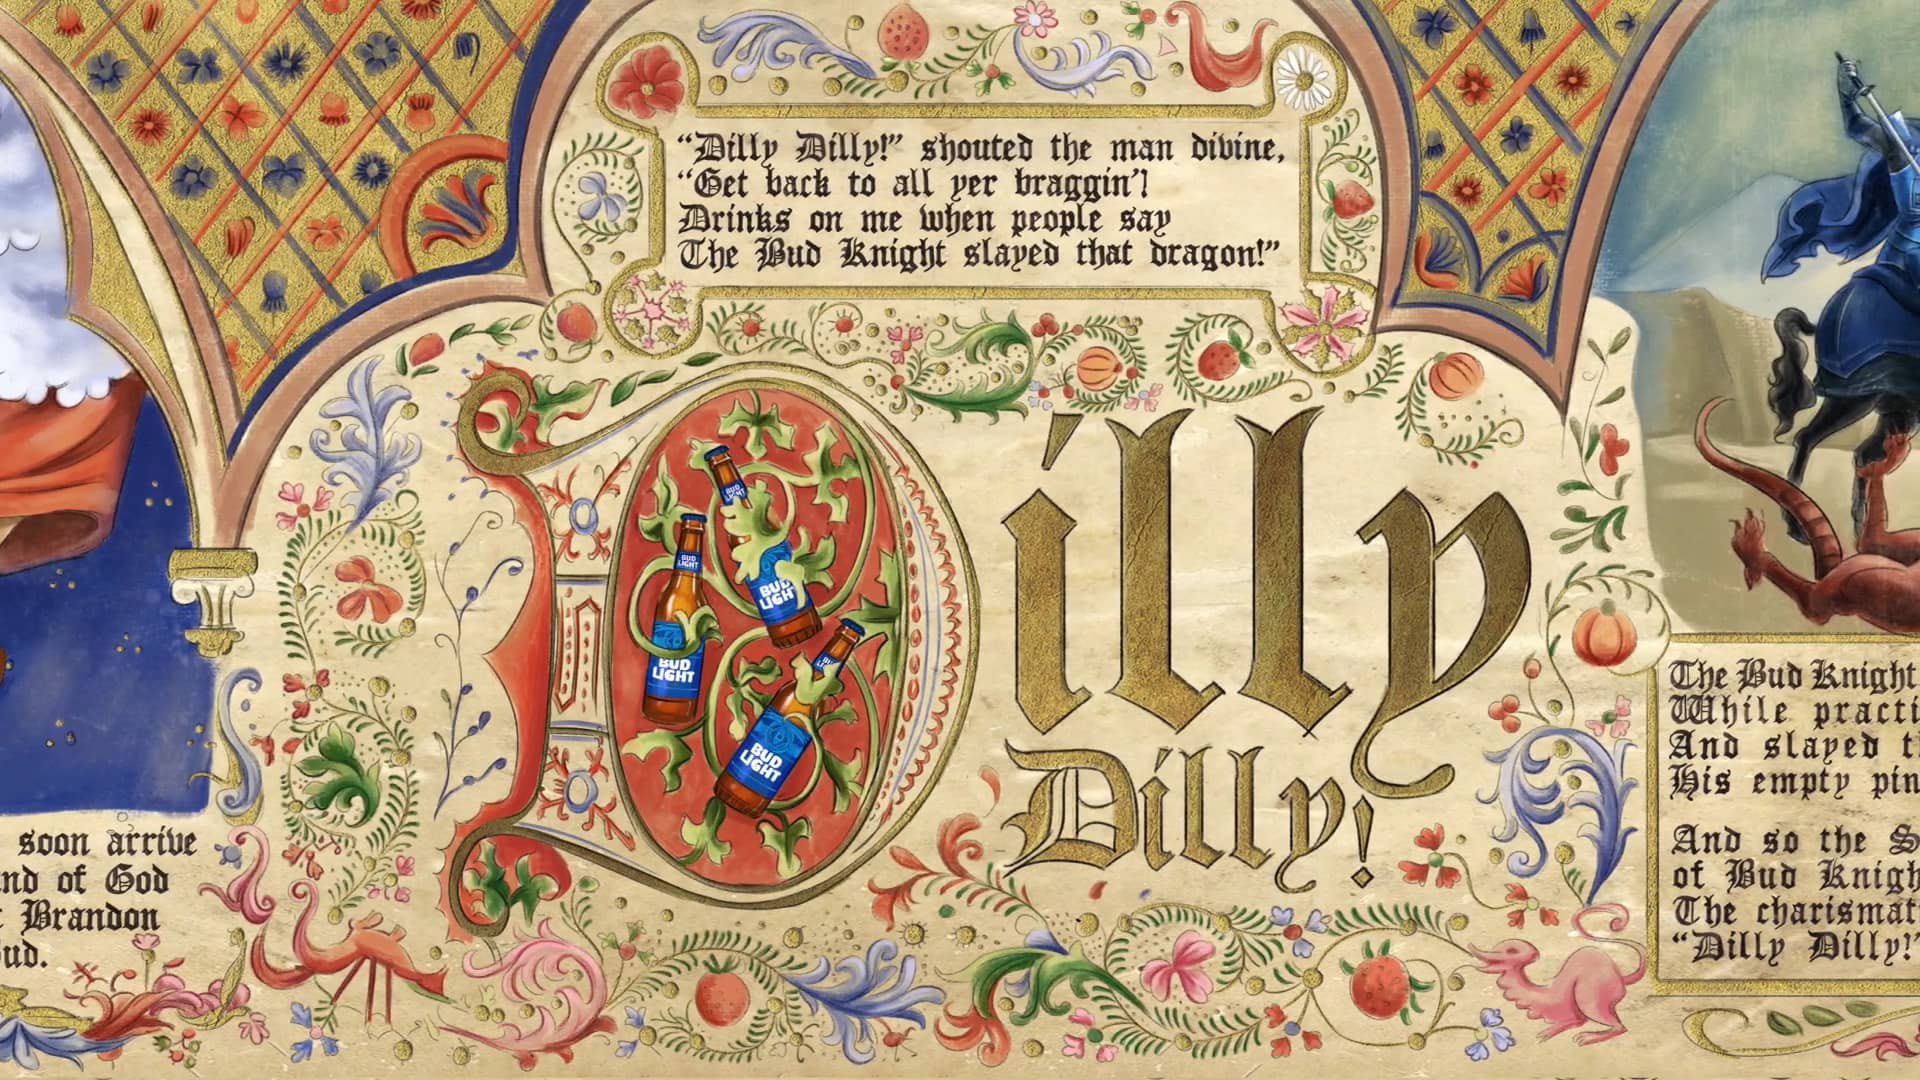 “Dilly Dilly!” shouted the man divine,
“Get back to all yer braggin’!
Drinks on me when people say
The Bud Knight slayed that dragon!”
Dilly
Dilly!
BUD
LIGHT
BUD
LIGHT
BUD
LIGHT
BUD
LIGHT
BUD
LIGHT
soon arrive
of God
Brandon
The Bud Knight
While
And slayed
His empty
And so the
of Bud
The
“Dilly Dilly!”